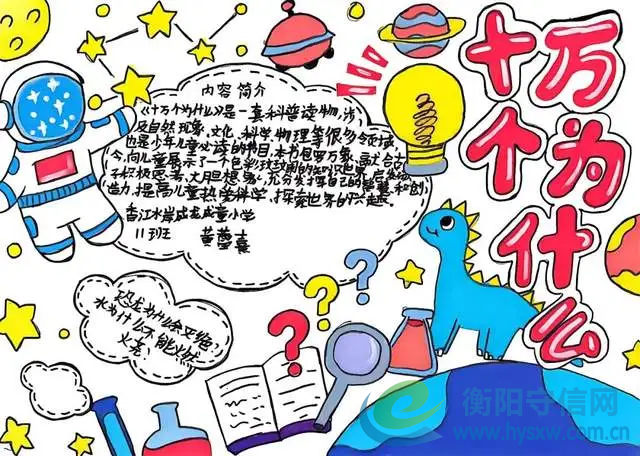 十万个为什么
内容简介
《十万个为什么》是一套科普读物,涉
及自然现象、文化、科学物理等很多领域,
也是少年儿童必读的书目,本书包罗万象,融合古
今,向儿童展示了一个色彩玫玫的知识世界,启发孩
子积极思考,大胆想象,充分发挥自己的智慧和创
造力,提高儿童热爱科学,探索世界的兴趣。
小学
11班
恐龙为什么会灭绝?
水为什么不能火然
火壳?
? ? ?
衡阳守信网
www.hysxw.com.cn